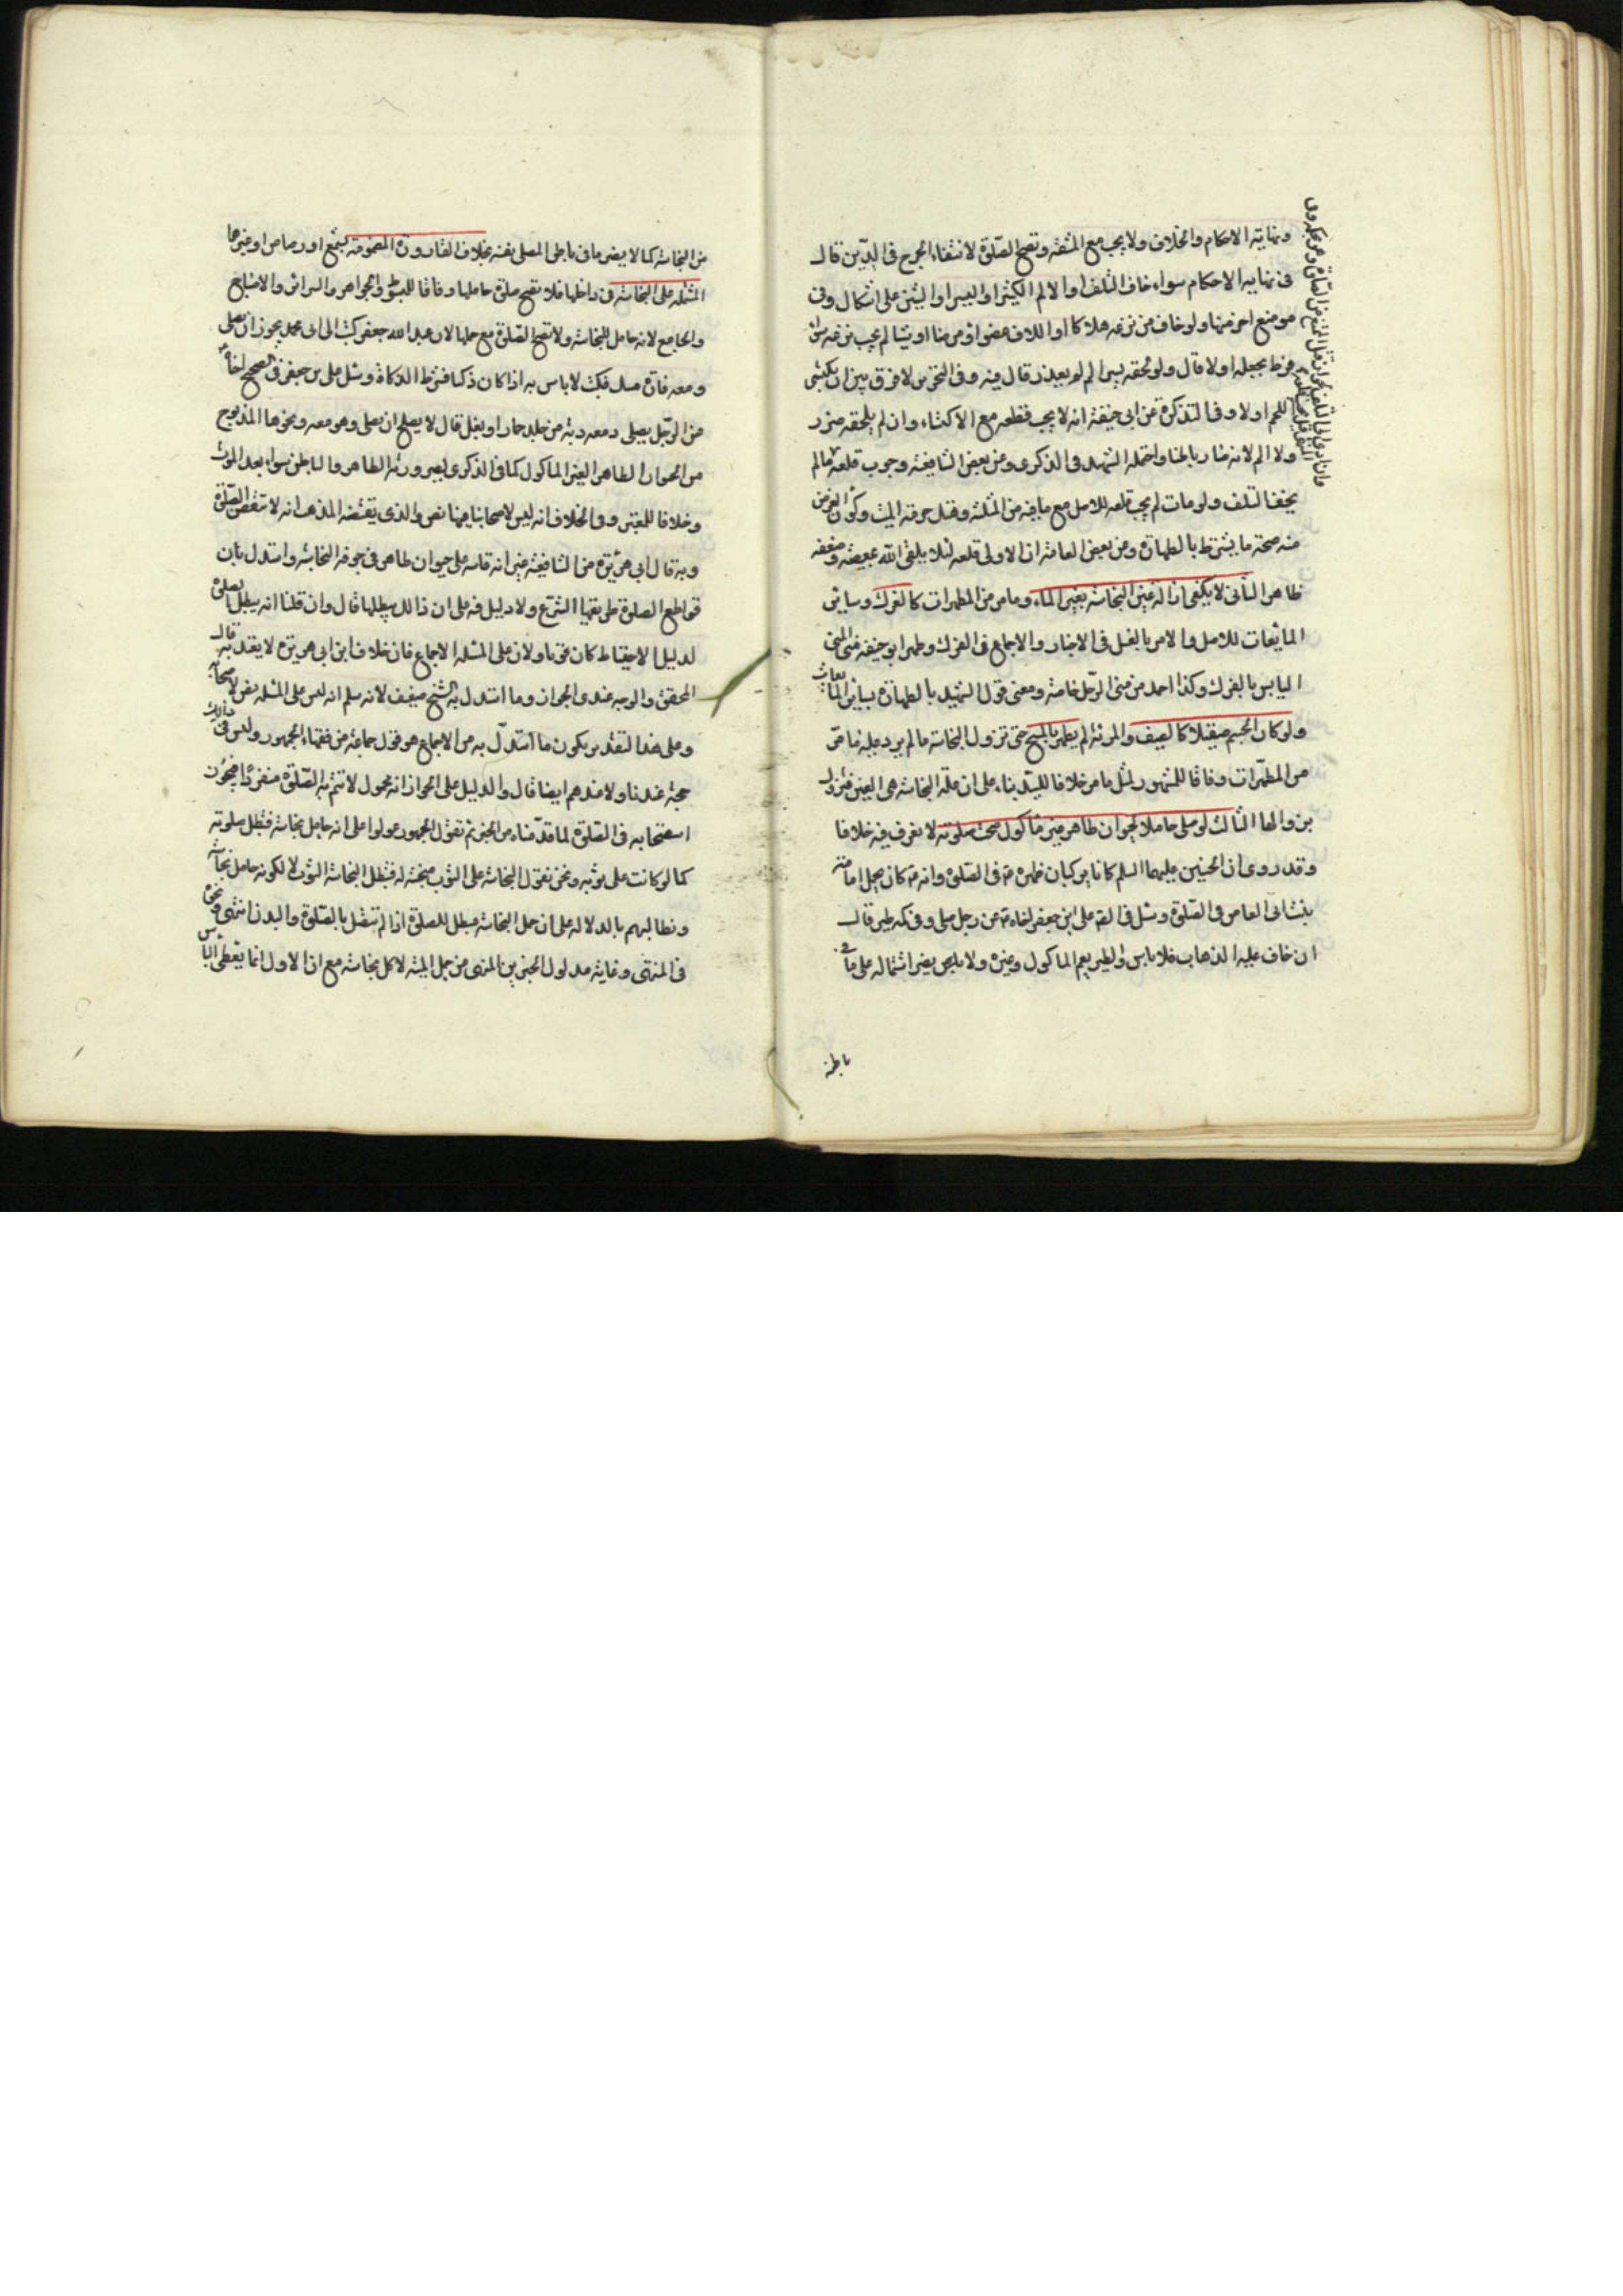 ونهاية الاحكام والخلاف ولا يجب مع المشقة وتصح الصلوة لانتفاء الحرج في الدين قال
في نهاية الاحكام سواء خاف التلف او الالم الكثير او اليسير او الشين على اشكال وفي
موضع اخر منها ولو خاف من نزعه هلاكا او اتلاف عضو او مرضا او شيا لم يجب نزعه سواء
فرط بجبله او لا قال ولو لحقه يسير الم لم يعذر قال فيه وفي التحرير لا فرق بين ان يكتسى
اللحم او لا وفي التذكرة عن ابي حنيفة انه لا يجب قطعه مع الاكتساء وان لم يلحقه ضرر
ولا الم لانه صار باطنا واحتمله الشهيد في الذكرى وعن بعض الشافعية وجوب قلعه ما لم
يخف التلف ولو مات لم يجب قلعه للاصل مع ما فيه من المثلة وهتك حرمة الميت وكون الغرض
منه صحة ما يشترط بالطهارة وعن بعض العامة ان الاولى قلعه لئلا يلقى الله بمعصية وضعفه
ظاهر الثاني لا يكفي ازالة عين النجاسة بغير الماء وما مر من المطهرات كالفرك وسائر
المائعات للاصل والامر بالغسل في الاخبار والاجماع في الفرك وطهر ابو حنيفة مني المني
اليابس بالفرك وكذا احمد من مني الرجل خاصة ومعنى قول السيد بالطهارة بسائر المايعات
ولو كان الجسم صيقلا كالسيف والمرئة لم يطهر بالمسح حتى تزول النجاسة ما لم يرد عليه ما مر
من المطهرات وفاقا للمشهور لمثل ما مر خلافا للسيد بناء على ان علة النجاسة هي العين فتزول
بزوالها الثالث لو صلى حاملا لحيوان طاهر غير مأكول صحت صلوته لا نعرف فيه خلافا
وقد روى ان الحسنين عليهما السلم كانا يركبان ظهره في الصلوة وانه كان يحمل امامة
بنت ابي العاص في الصلوة وسئل في الصحيح علي ابن جعفر اخاه عن رجل صلى وفي كمه طير قال
ان خاف عليه الذهاب فلا باس والطير يعم الماكول وغيره ولا يضر اشتماله على ما في
باطنه
من النجاسة كما لا يضر ما في باطن المصلي نفسه بخلاف القارورة المضمومة بشمع او رصاص او غيرها
المشتملة على النجاسة في داخلها فلا تصح صلوة حاملها وفاقا للمبسوط والجواهر والسرائر والاصباح
والجامع لانه حامل للنجاسة ولا تصح الصلوة مع حملها لان عبد الله جعفر كتب الى ابي محمد يجوز ان يصلي
ومعه فارة مسك فكتب لا باس به اذا كان ذكيا فشرط الذكاة وسئل علي بن جعفر في الصحيح اخاه
عن الرجل يصلي ومعه دبة من جلد حمار او بغل قال لا يصلح ان يصلي وهو معه ونحوها المذبوح
من الحيوان الطاهر الغير الماكول كما في الذكرى لصيرورته الظاهر والباطن سواء بعد الموت
وخلافا للمعتبر وفي الخلاف انه ليس لاصحابنا فيها نص والذي يقتضيه المذهب انه لا تنقض الصلوة
وبه قال ابي هريرة من الشافعية غير انه قاسه على حيوان طاهر في جوفه النجاسة واستدل بان
قواطع الصلوة طريقها الشرع ولا دليل فيه على ان ذالك يبطلها قال وان قلنا انه يبطل الصلوة
لدليل الاحتياط كان قويا ولان على المسئلة الاجماع فان خلاف ابن ابي هريرة لا يعتد به قال
المحقق والوجه عندي الجواز وما استدل به الشيخ ضعيف لانه سلم انه ليس على المسئلة نص لاصحابنا
وعلى هذا التقدير يكون ما استدل به من الاجماع هو قول جماعة من فقهاء الجمهور وليس في ذالك
حجة عندنا ولا عندهم ايضا قال والدليل على الجواز انه محمول لا تتم به الصلوة منفردا فيجوز
استصحابه في الصلوة لما قدمناه من الخبر ثم نقول الجمهور عولوا على انه حامل نجاسة فتبطل صلوته
كما لو كانت على ثوبه ونحن نقول النجاسة على الثوب منجسة له فتبطل النجاسة الثوب لا لكونه حامل نجاسة
ونطالبهم بالدلالة على ان حمل النجاسة مبطل للصلوة اذا لم تتصل بالصلوة والبدن انتهى ونحوه
في المنتهى وغاية مدلول الخبرين النهي عن حمل الميتة لا كل نجاسة مع ان الاول انما يعطى الباس